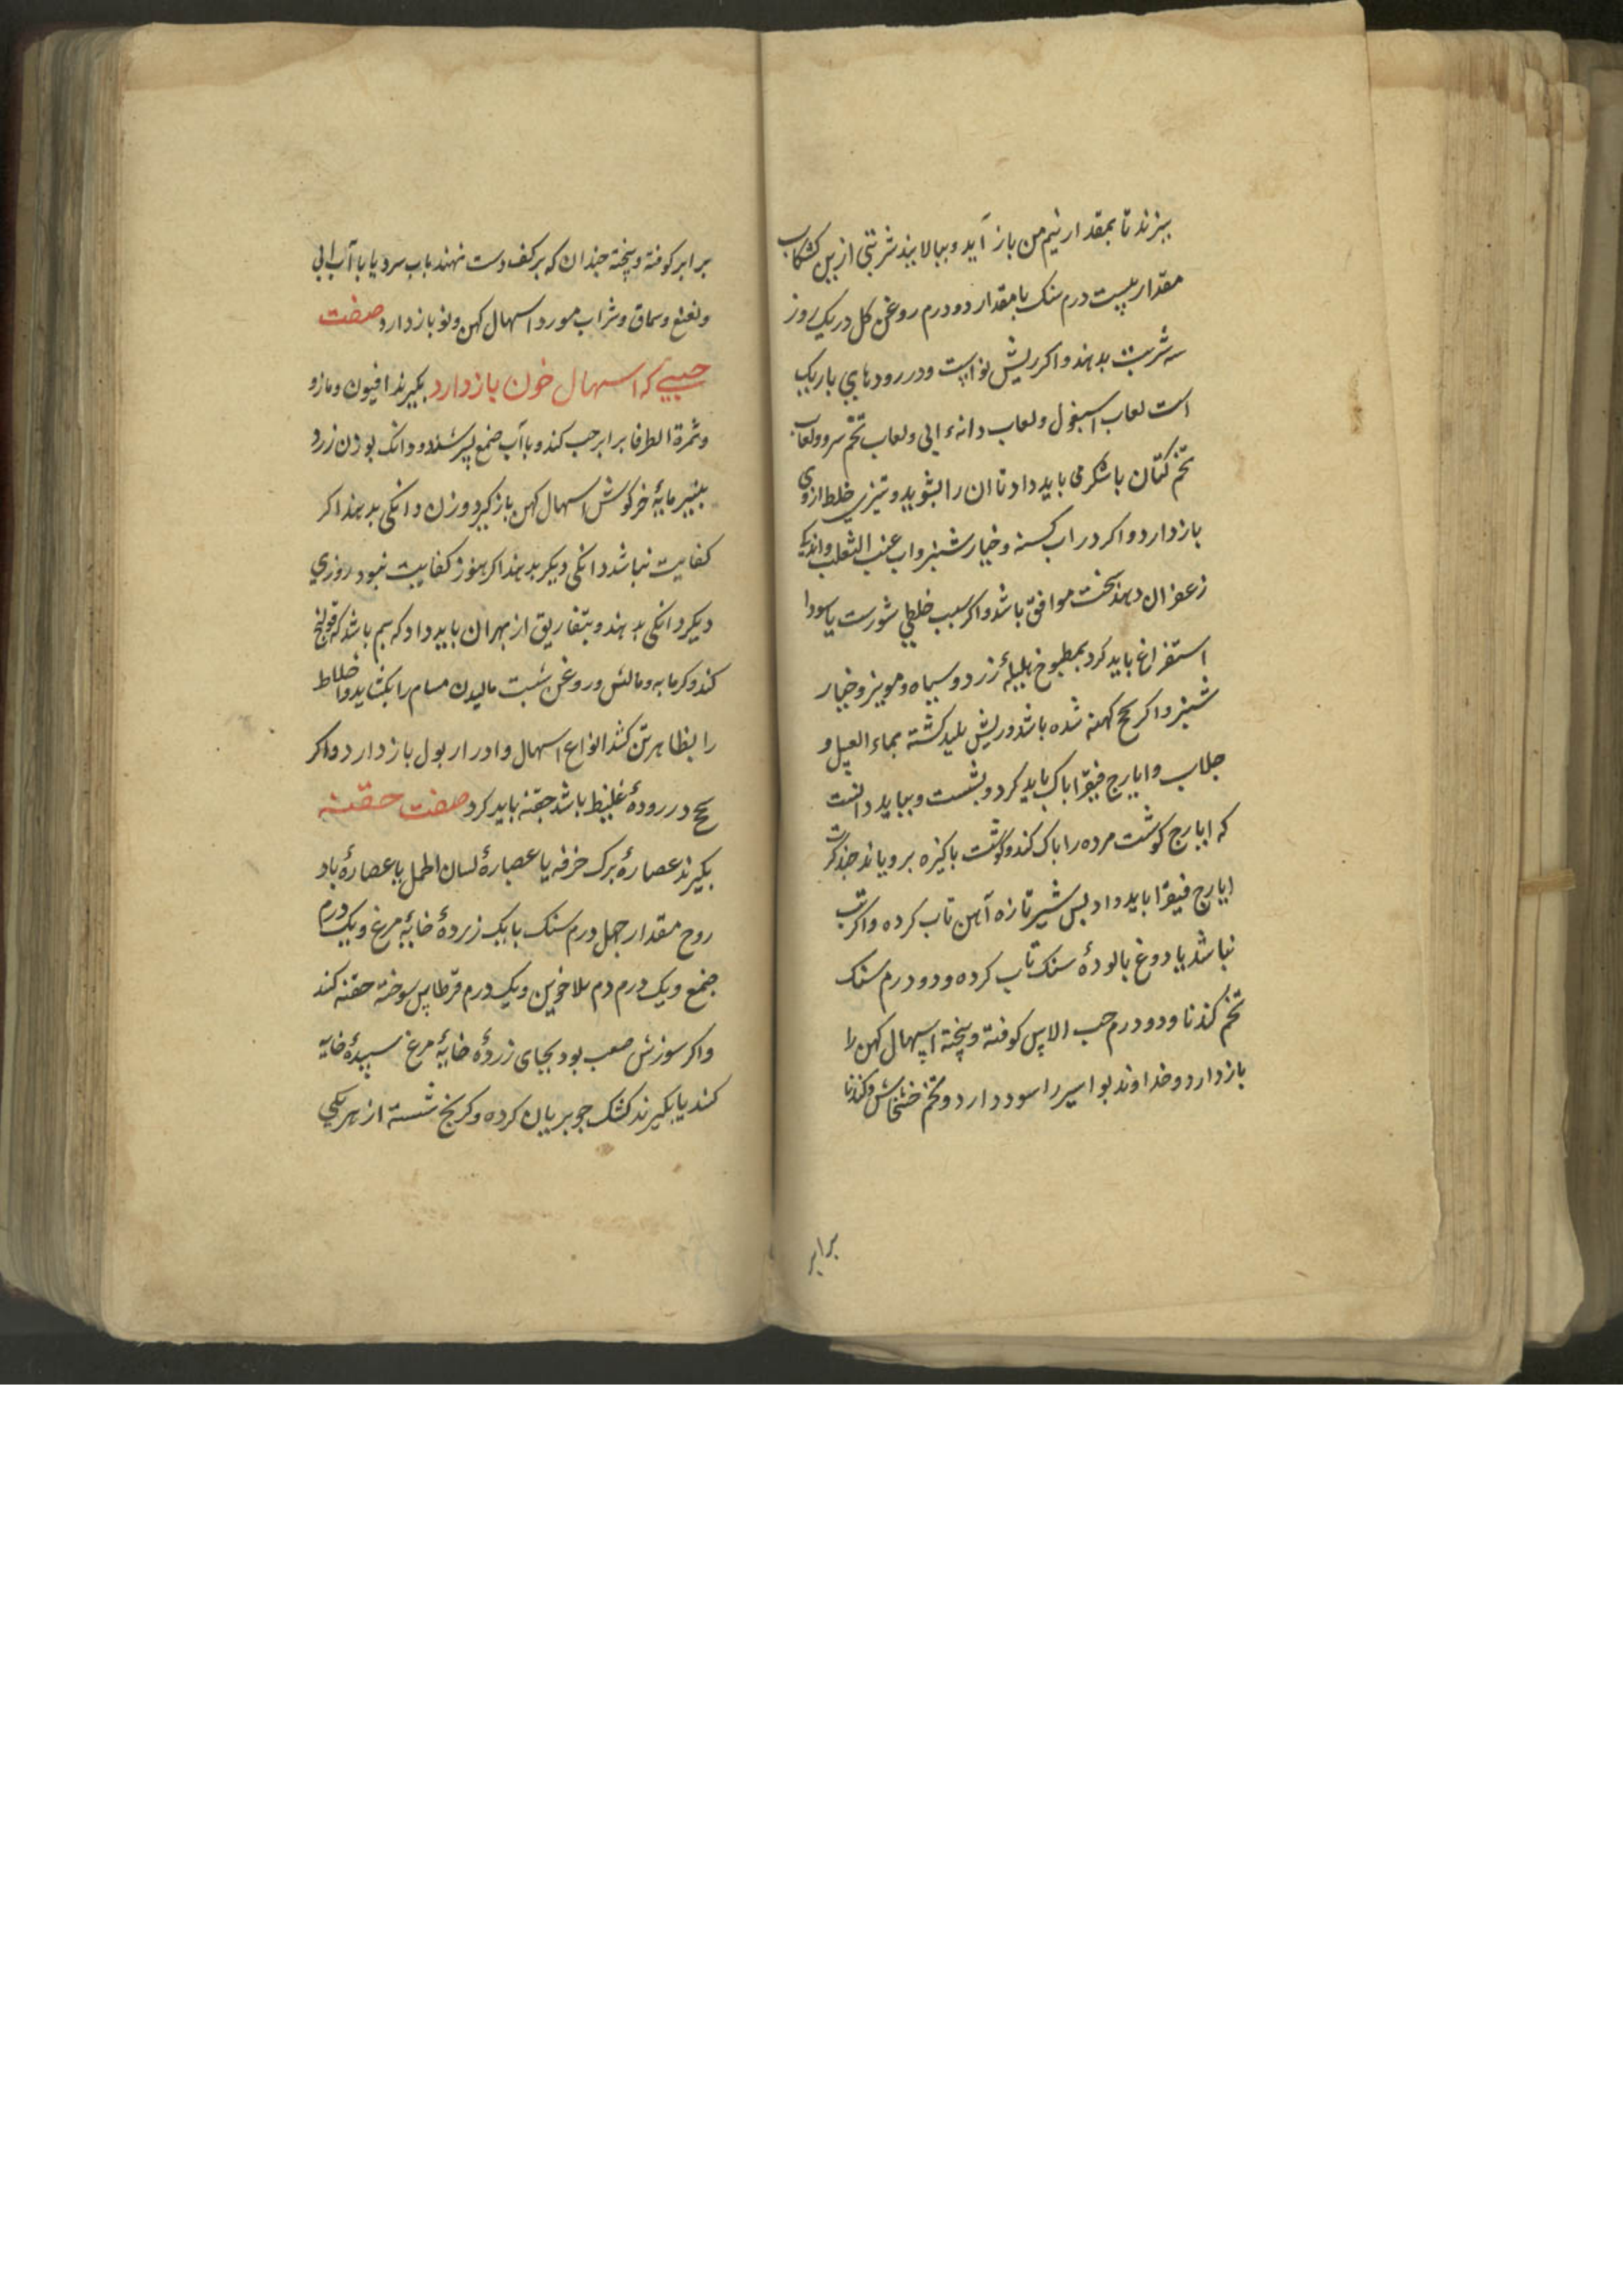 ببزند تا بمقدار نیم من باز آید و ببالایند شربتی ازین کشکاب
مقدار بیست درم سنک با مقدار دو درم روغن کل در یک روز
سه شربت بدهند و اکر ریش نو است و در رودهای باریک
است لعاب اسبغول و لعاب دانهء ابی و لعاب تخم مرو و لعاب
تخم کتان با شکر می باید داد تا ان را بشوید و تیزی خلط ازوی
بازدارد و اکر در اب کسنه و خیارشنبر و اب عنب الثعلب و اندکی
زعفران دهند سخت موافق باشد و اکر سبب خلطی شورست یا سودا
استفراغ باید کرد بمطبوخ هلیلهٔ زرد و سیاه و مویز و خیار
شنبر و اکر سحج کهنه شده باشد و ریش بلید کشته بماء العسل و
جلاب و ایارج فیقرا باک باید کرد و بشست و بباید دانست
که ایارج کوشت مرده را باک کند و کوشت باکیزه برویاند جند کرت
ایارج فیقرا باید داد بس شیر تازه آهن تاب کرده و اکر تب
نباشد یا دوغ بالودهٔ سنک تاب کرده و دو درم سنک
تخم کندنا و دو درم حب الاس کوفته و بیخته اسهال کهن را
بازدارد و خداوند بواسیر را سود دارد و تخم خشخاش و کندنا
برابر
برابر کوفته و بیخته جندان که بر کف دست نهند باب سرد یا با آب ابی
و نعنع و سماق و شراب مورد اسهال کهن و نو بازدارد صفت
حبیی که اسهال خون بازدارد بکیرند افیون و مازو
و ثمرة الطرفا برابر حب کند و با آب صمغ بسرشند و دو دانک بوزن زرد
ببنیر مایهٔ خرکوش اسهال کهن باز کیرد وزن دانکی بدهند اکر
کفایت نباشد دانکی دیکر بدهند اکر هنوز کفایت نبود روزی
دیکر دانکی بدهند و بتفاریق از بهر ان باید داد که بیم باشد که قولنج
کند و کرمابه و مالش و روغن شبت مالیدن مسام را بکشاید و اخلاط
را بظاهر تن کشد انواع اسهال و ادرار بول بازدارد و اکر
سحج در رودهٔ غلیظ باشد حقنه باید کرد صفت حقنه
بکیرند عصارهٔ برک خرفه یا عصارهٔ لسان الحمل یا عصارهٔ باد
روج مقدار جهل درم سنک با یک زردهٔ خایهٔ مرغ و یک درم
صمغ و یک درم دم الاخوین و یک درم قرطاس سوخته حقنه کند
و اکر سوزش صعب بود بجای زردهٔ خایهٔ مرغ سپیدهٔ خایه
کند یا بکیرند کشک جو بریان کرده و کرنج شسته از هر یکی